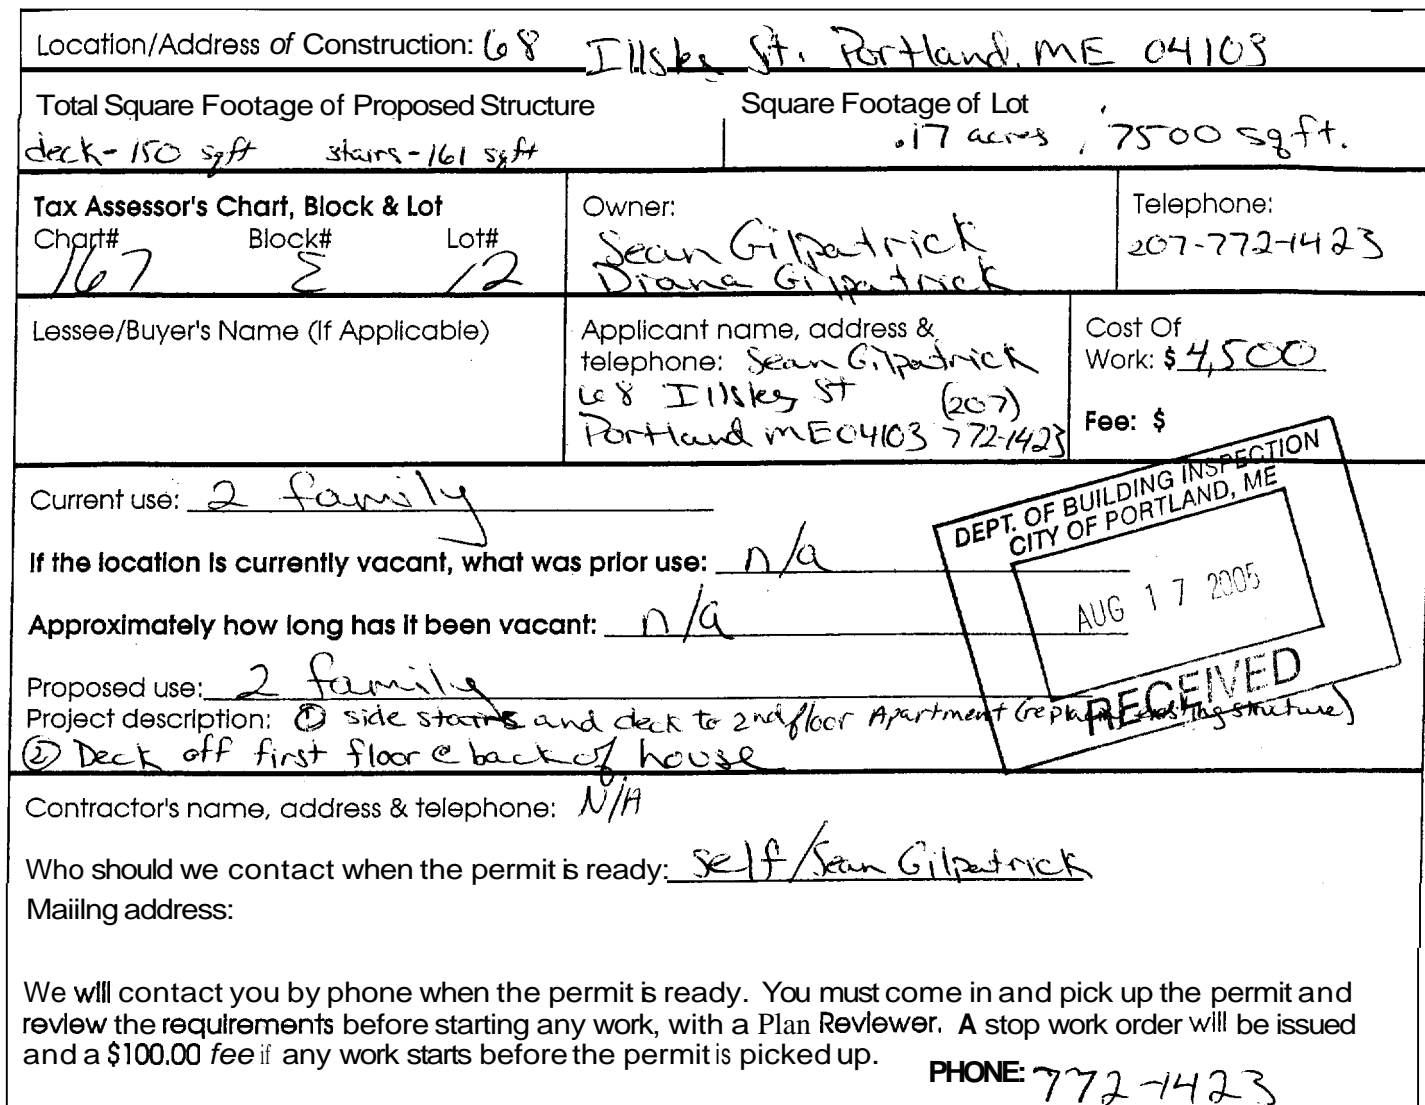 Location/Address of Construction: 68 Illsley St. Portland, ME 04103
Total Square Footage of Proposed Structure
deck- 150 sqft stairs- 161 sqft
Square Footage of Lot
.17 acres, 7500 sqft.
Tax Assessor's Chart, Block & Lot
Chart# Block# Lot#
167 E 12
Owner:
Sean Gilpatrick
Diana Gilpatrick
Telephone:
207-772-1423
Lessee/Buyer's Name (If Applicable)
Applicant name, address &
telephone: Sean Gilpatrick
68 Illsley St (207)
Portland ME 04103 772-1423
Cost Of
Work: $ 4,500
Fee: $
Current use: 2 family
If the location is currently vacant, what was prior use: n/a
Approximately how long has it been vacant: n/a
Proposed use: 2 family
Project description: ① side stairs and deck to 2nd floor Apartment (replacing existing structure)
② Deck off first floor @ back of house
DEPT. OF BUILDING INSPECTION
CITY OF PORTLAND, ME
AUG 17 2005
RECEIVED
Contractor's name, address & telephone: N/A
Who should we contact when the permit is ready: self/Sean Gilpatrick
Maiilng address:
We will contact you by phone when the permit is ready. You must come in and pick up the permit and
review the requirements before starting any work, with a Plan Reviewer. A stop work order will be issued
and a $100.00 fee if any work starts before the permit is picked up.
PHONE: 772-1423